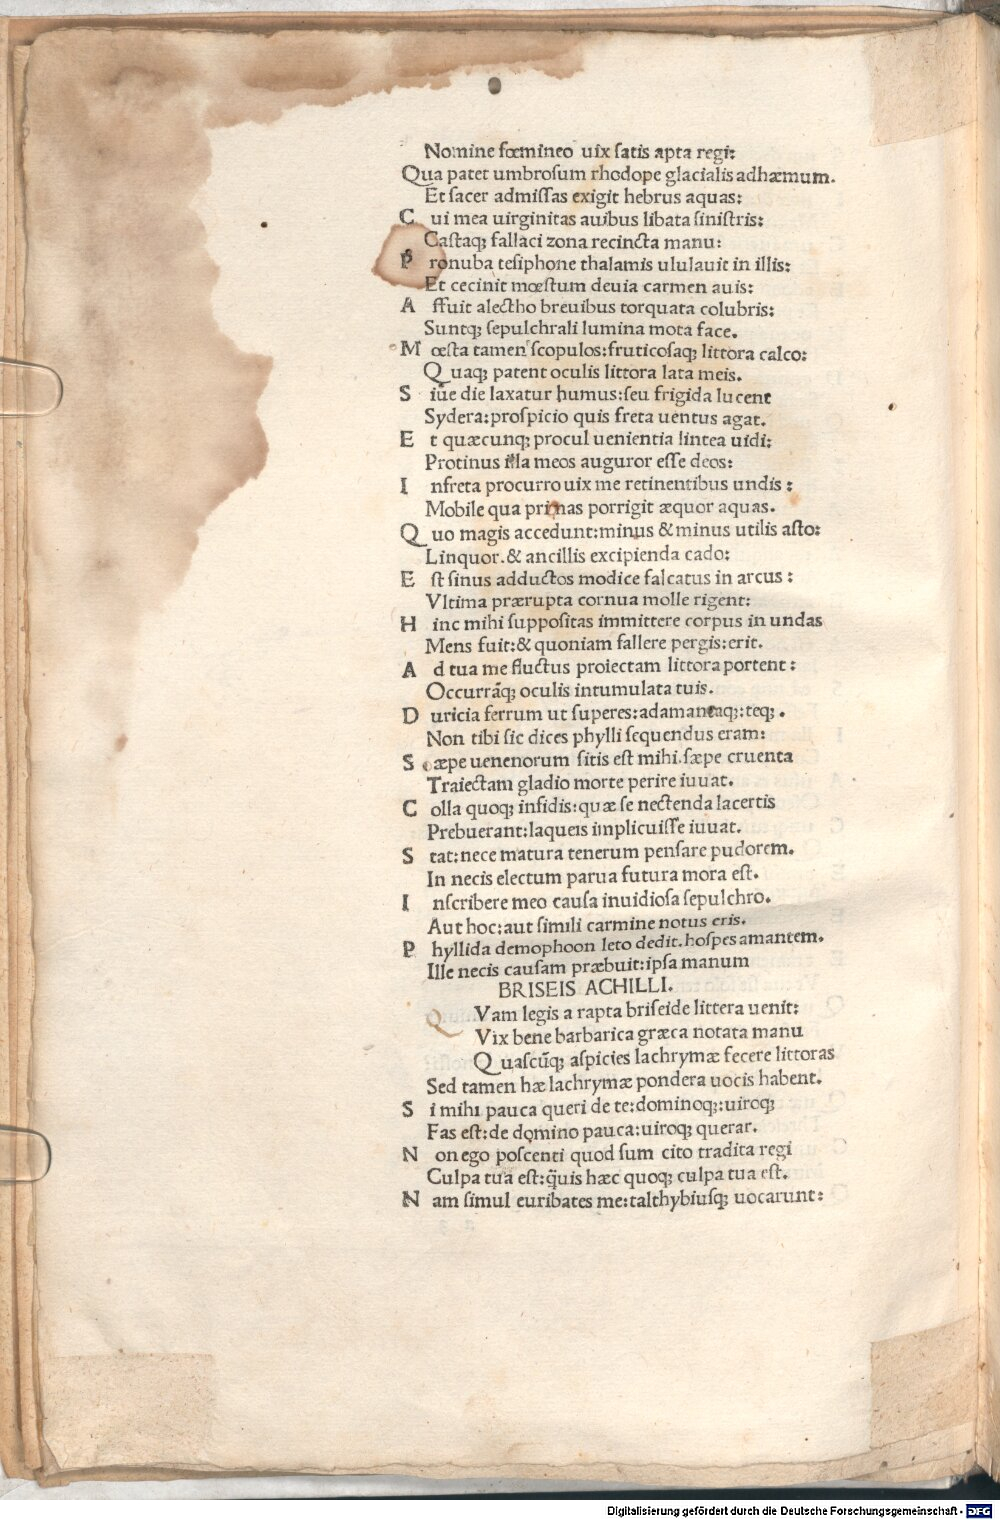 Nomine fœmineo uix ſatis apta regi:
Qua patet umbroſum rhodope glacialis adhæmum.
Et ſacer admiſſas exigit hebrus aquas:
C ui mea uirginitas auibus libata ſiniſtris:
Caſtaq; fallaci zona recincta manu:
P ronuba teſiphone thalamis ululauit in illis:
Et cecinit mœſtum deuia carmen auis:
A ffuit alectho breuibus torquata colubris:
Suntq; ſepulchrali lumina mota face.
M œſta tamen ſcopulos: fruticoſaq; littora calco:
Quaq; patent oculis littora lata meis.
S iue die laxatur humus: ſeu frigida lucent
Sydera: proſpicio quis freta uentus agat.
E t quæcunq; procul uenientia lintea uidi:
Protinus illa meos auguror eſſe deos:
I nfreta procurro uix me retinentibus undis:
Mobile qua primas porrigit æquor aquas.
Q uo magis accedunt: minus & minus utilis aſto:
Linquor. & ancillis excipienda cado:
E ſt ſinus adductos modice falcatus in arcus:
Vltima prærupta cornua molle rigent:
H inc mihi ſuppoſitas immittere corpus in undas
Mens fuit: & quoniam fallere pergis: erit.
A d tua me fluctus proiectam littora portent:
Occurrāq; oculis intumulata tuis.
D uricia ferrum ut ſuperes: adamantaq;: teq;.
Non tibi ſic dices phylli ſequendus eram:
S æpe uenenorum ſitis eſt mihi. ſæpe cruenta
Traiectam gladio morte perire iuuat.
C olla quoq; infidis: quæ ſe nectenda lacertis
Prebuerant: laqueis implicuiſſe iuuat.
S tat: nece matura tenerum penſare pudorem.
In necis electum parua futura mora eſt.
I nſcribere meo cauſa inuidioſa ſepulchro.
Aut hoc: aut ſimili carmine notus eris.
P hyllida demophoon leto dedit. hoſpes amantem.
Ille necis cauſam præbuit: ipſa manum
BRISEIS ACHILLI.
Q Vam legis a rapta briſeide littera uenit:
Vix bene barbarica græca notata manu
Quaſcūq; aſpicies lachrymæ fecere littoras
Sed tamen hæ lachrymæ pondera uocis habent.
S i mihi pauca queri de te: dominoq;: uiroq;
Fas eſt: de domino pauca: uiroq; querar.
N on ego poſcenti quod ſum cito tradita regi
Culpa tua eſt: q̃uis hæc quoq; culpa tua eſt.
N am ſimul euribates me: talthybiuſq; uocarunt:
Digitalisierung gefördert durch die Deutsche Forschungsgemeinschaft - DFG